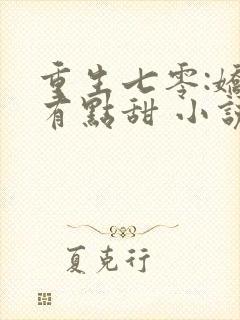 重生七零:嬌
有點甜 小說
夏克行